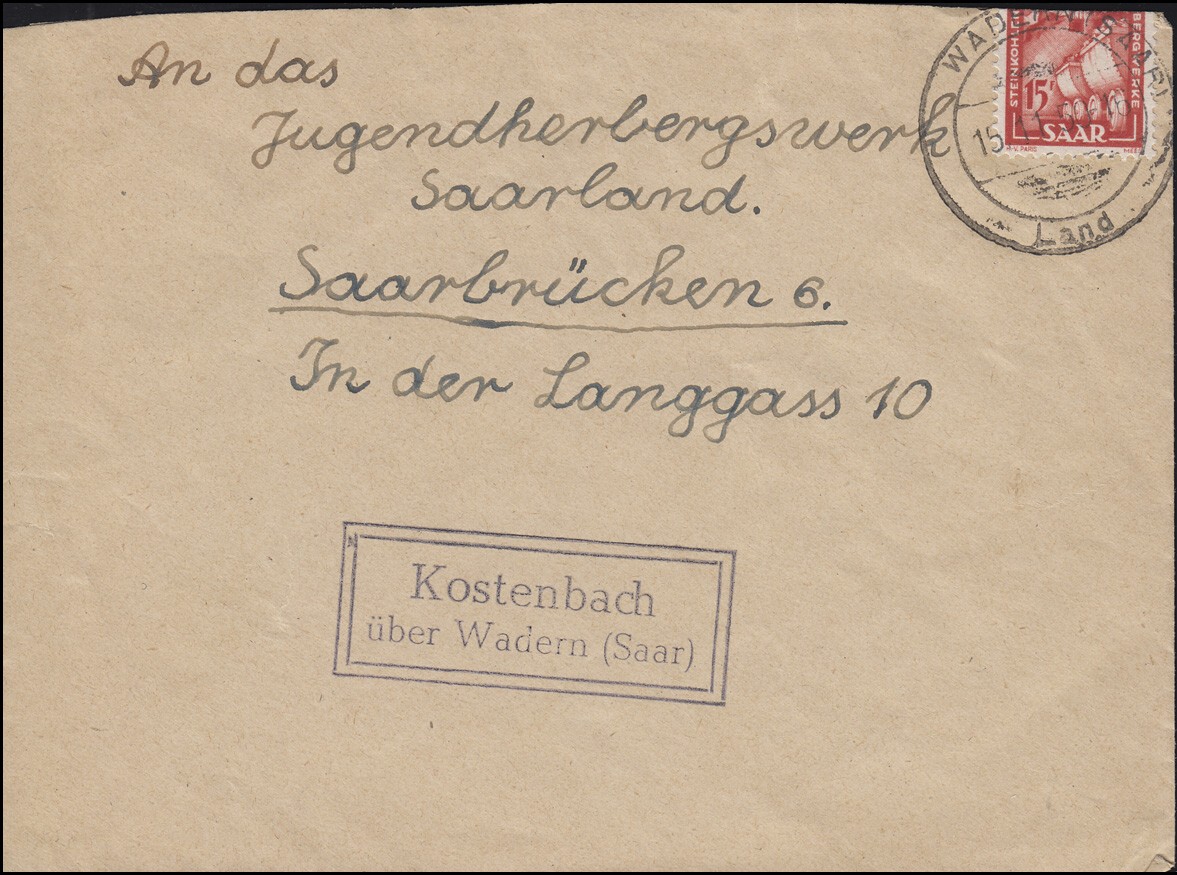 An das
Jugendherbergswerk
Saarland.
Saarbrücken 6.
In der Langgass 10
STEINKOHL
BERGWERKE
15F
SAAR
H.V. PARIS
WADERN (SAAR)
Land
Kostenbach
über Wadern (Saar)